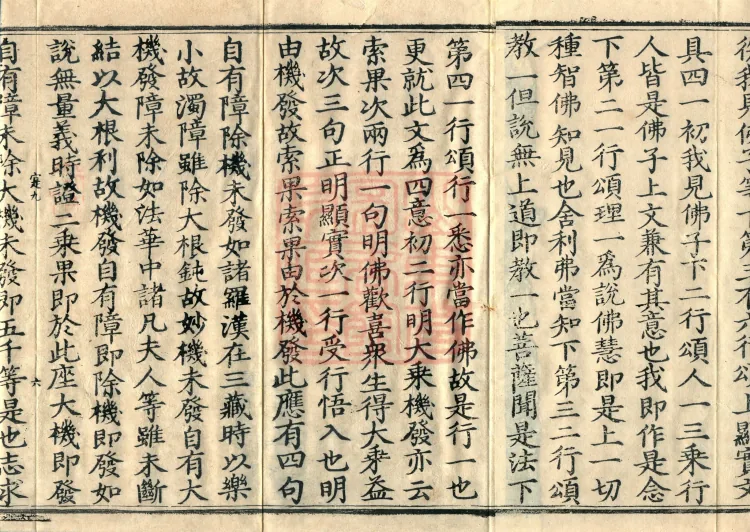 顯實文
具四一初我見佛子下二行頌人一三乘行
人皆是佛子上文兼有其意也我即作是念
下第二一行頌理一為說佛慧即是上一切
種智佛知見也舍利弗當知下第三二行頌
教一但說無上道即教一也菩薩聞是法下
第四一行頌行一悉亦當作佛故是行一也
更就此文為四意初二行明大乗機發亦云
索果次兩行一句明佛歡喜衆生得大乗益
故次三句正明顯實次一行受行悟入也明
由機發故索果索果由於機發此應有四句
自有障除機未發如諸羅漢在三藏時以樂
小故濁障雖除大根鈍故妙機未發自有大
機發障未除如法華中諸凡夫人等雖未斷
結以大根利故機發自有障即除機即發如
說無量義時證二乗果即於此座大機即發
定九
六
自有障未除大機未發即五千等是也志求